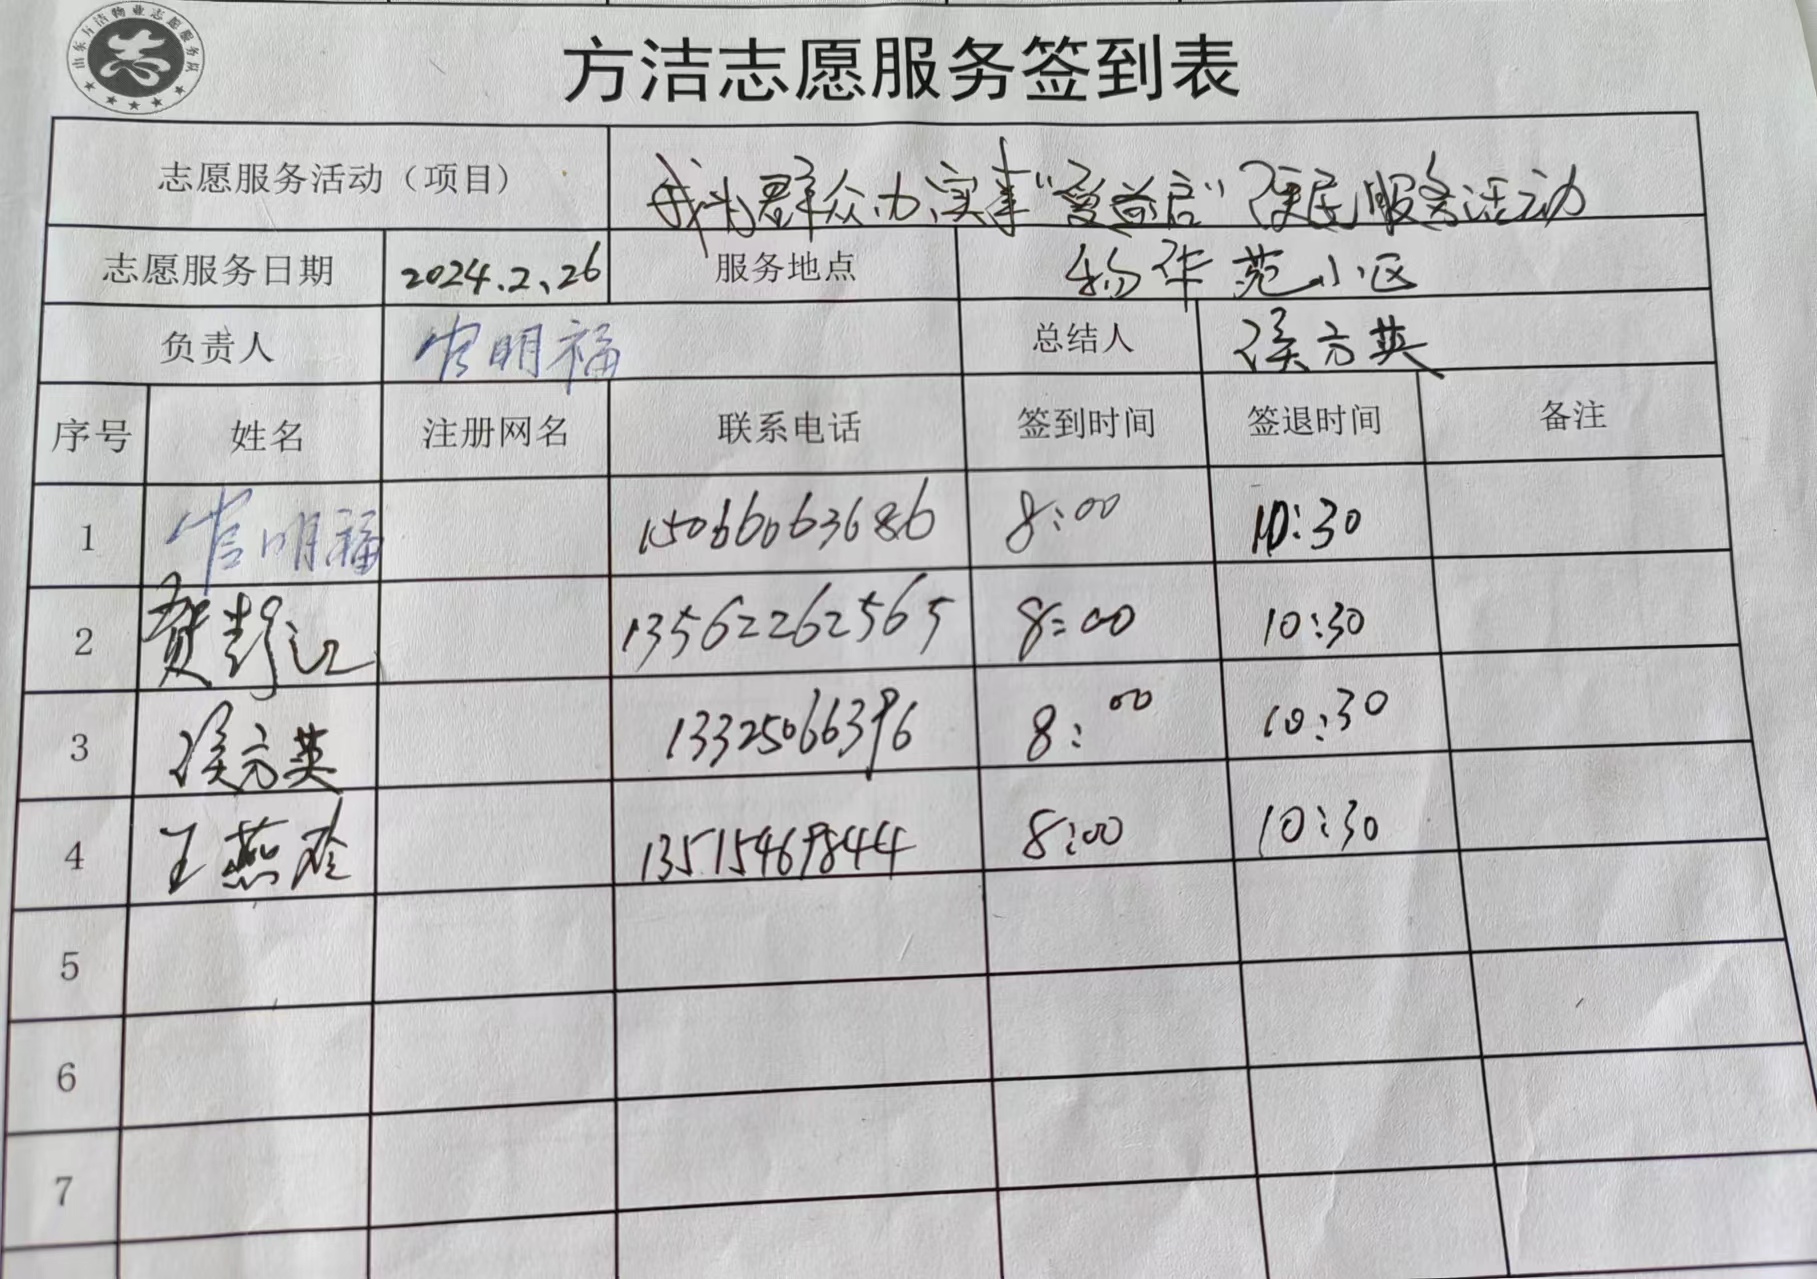 山东方洁物业志愿服务队
方洁志愿服务签到表
志愿服务活动（项目） 我为群众办实事“爱益启”便民服务活动
志愿服务日期 2024.2.26 服务地点 物华苑小区
负责人 官明福 总结人 侯方英
序号 姓名 注册网名 联系电话 签到时间 签退时间 备注
1 官明福 15066063686 8:00 10:30
2 贺彭江 13562262565 8:00 10:30
3 侯方英 13325066396 8:00 10:30
4 王燕玲 13515469844 8:00 10:30
5
6
7